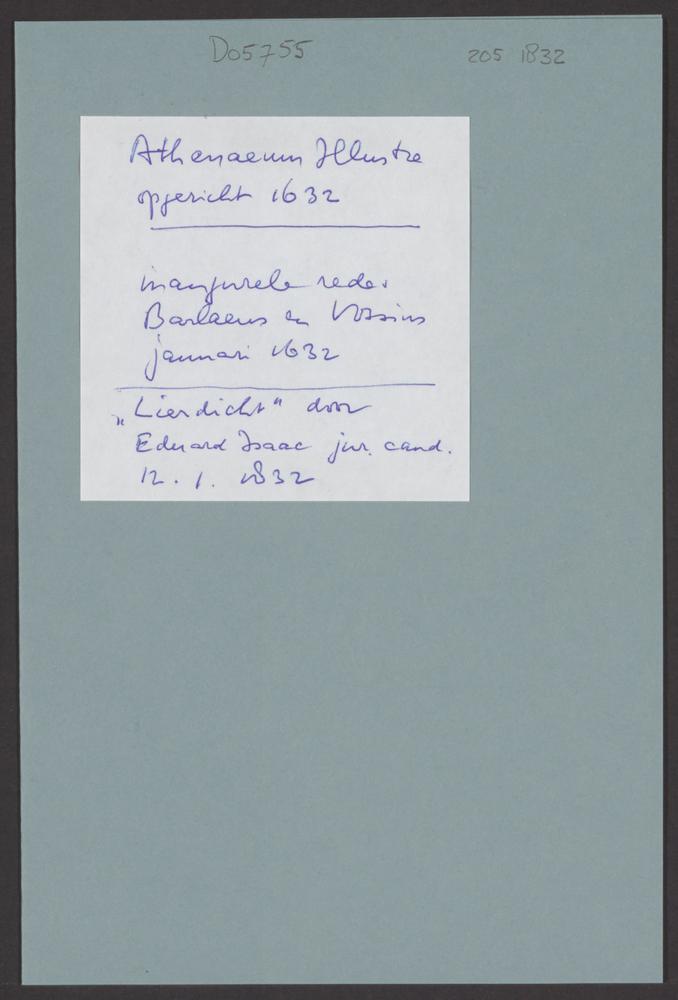 Do5755
205 1832
Athenaeum Illustre
opgericht 1632
inaugurele redes
Barlaeus en Vossius
januari 1632
„Lierdicht" door
Eduard Isaac jur. cand.
12. 1. 1832